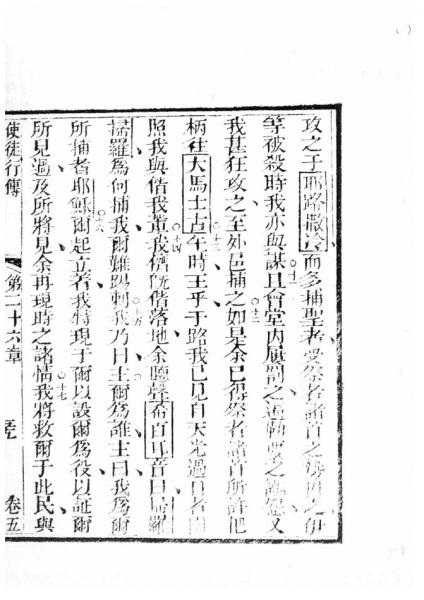 攻之于耶路撒冷而多捕聖者受祭者諸首之
等被殺時我亦與謀且會堂內屢罰之逼勒之又
我甚狂攻之至外邑捕之如是余已得祭者諸首所許把
柄往大馬士古午時王乎于路我已見自天光過日者
照我與偕我輩我儕旣偕落地余聽聲希百耳音曰掃羅
掃羅為何捕我爾難踢刺我乃曰主爾為誰主曰我為爾
所捕者耶穌爾起立著我特現于爾以設爾為役以証爾
所見過及所將見余再現時之諸情我將救爾于此民與
使徒行傳 第二十六章 卷五
十一
十二
十三
十四
十五
十六
十七